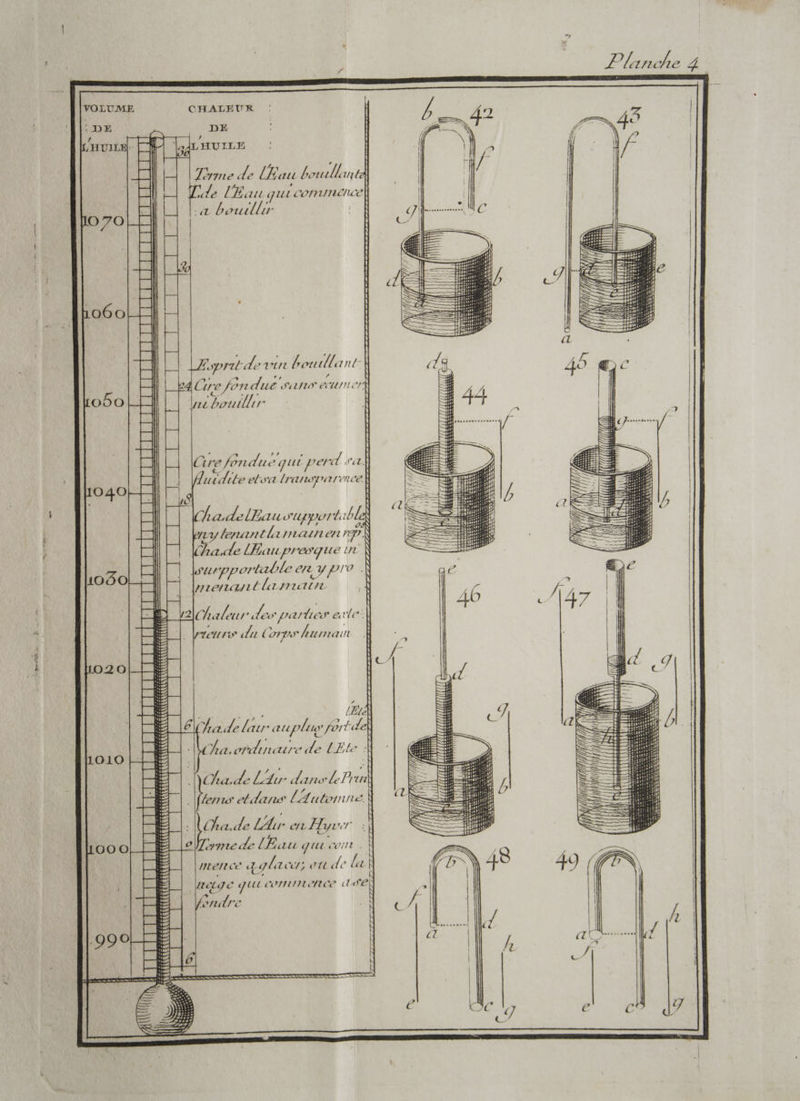 Planche 4
VOLUME CHALEUR
DE DE
LHUILE LHUILE
34
Terme de l'Eau bouillante
T.de l'Eau qui commence
a bouillir
1070
30
1060
Esprit de vin bouillant
24 Cire fonduë sans ecumer
1050
ni bouillir
Cire fonduë qui perd sa
fluidite et sa transparence
1040
18
Cha.de l'Eau supportable
en y tenant la main en rep.os
Cha.de l'Eau presque in
surpportable en y pro .
1030
menant la main
12 Chaleur des parties exte .
rieurs du Corps humain
1020
l'Eté
6 Cha.de lair au plus fort de
Cha.ordinaire de l'Ete
1010
Cha.de l'Air dans le Prin
tems et dans l'Automne
Cha.de l'Air en Hyver
1000
0 Terme de l'Eau qui com .
mence a glacer, ou de la
neige qui commence a se
fendre
990
6
b 42
f
g c
d b
a
43
f
g d e
c
a
d
44
f
a b
45 c
g f
a b
e
46
f d
g
a b
e
f 47
d g
a b
h
b 48
f
a d
h
e c g
b 49
a d h
f
e c g